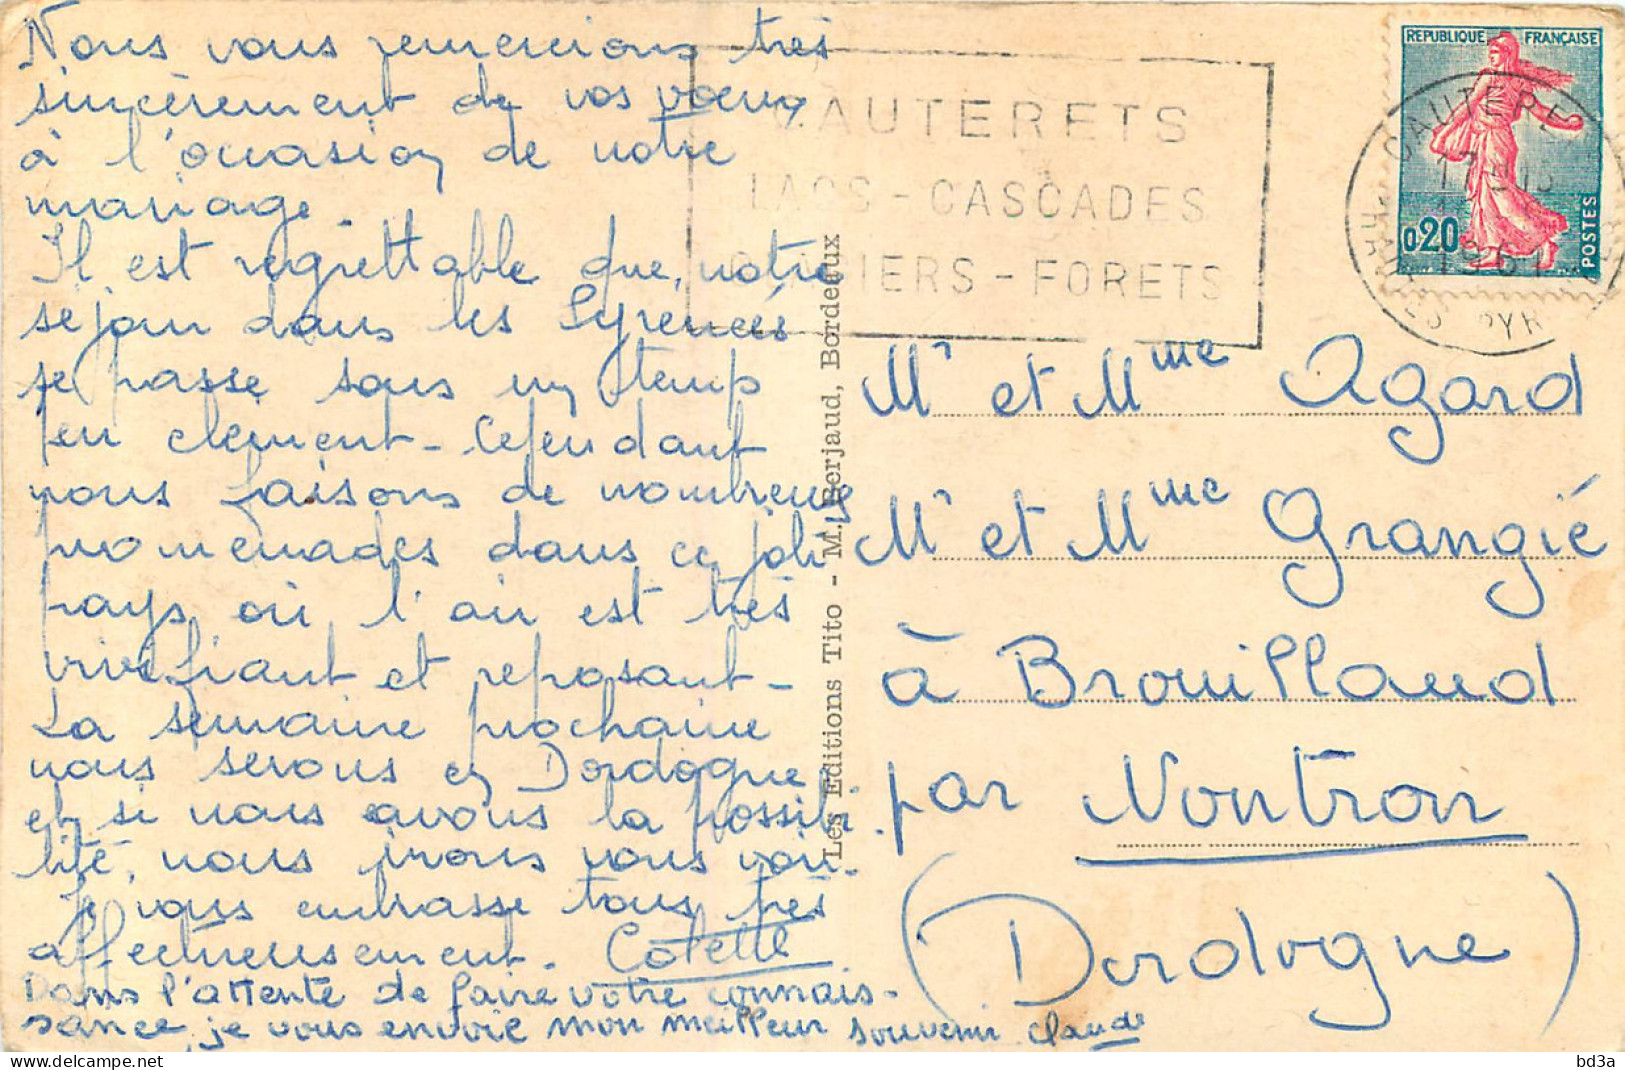 Nous vous remercions très
sincèrement de vos voeux
à l'occasion de notre
mariage.
Il est regrettable que notre
séjour dans les Pyrénées
se passe sous un temps
peu clément - Cependant
nous faisons de nombreuses
promenades dans ce joli
pays où l'air est très
vivifiant et reposant -
La semaine prochaine
nous serons en Dordogne
et si nous avons la possibi-
lité, nous irons vous voir.
Je vous embrasse tous très
affectueusement. Colette
Dans l'attente de faire votre connais-
sance, je vous envoie mon meilleur souvenir Claude
CAUTERETS
LACS - CASCADES
GLACIERS - FORETS
REPUBLIQUE FRANÇAISE
0,20
POSTES
CAUTERETS
17
1961
HAUTES PYR
Les Editions Tito - M. Berjaud, Bordeaux
Mr et Mme Agard
Mr et Mme Grangié
à Brouillaud
par Nontron
(Dordogne)
bd3a